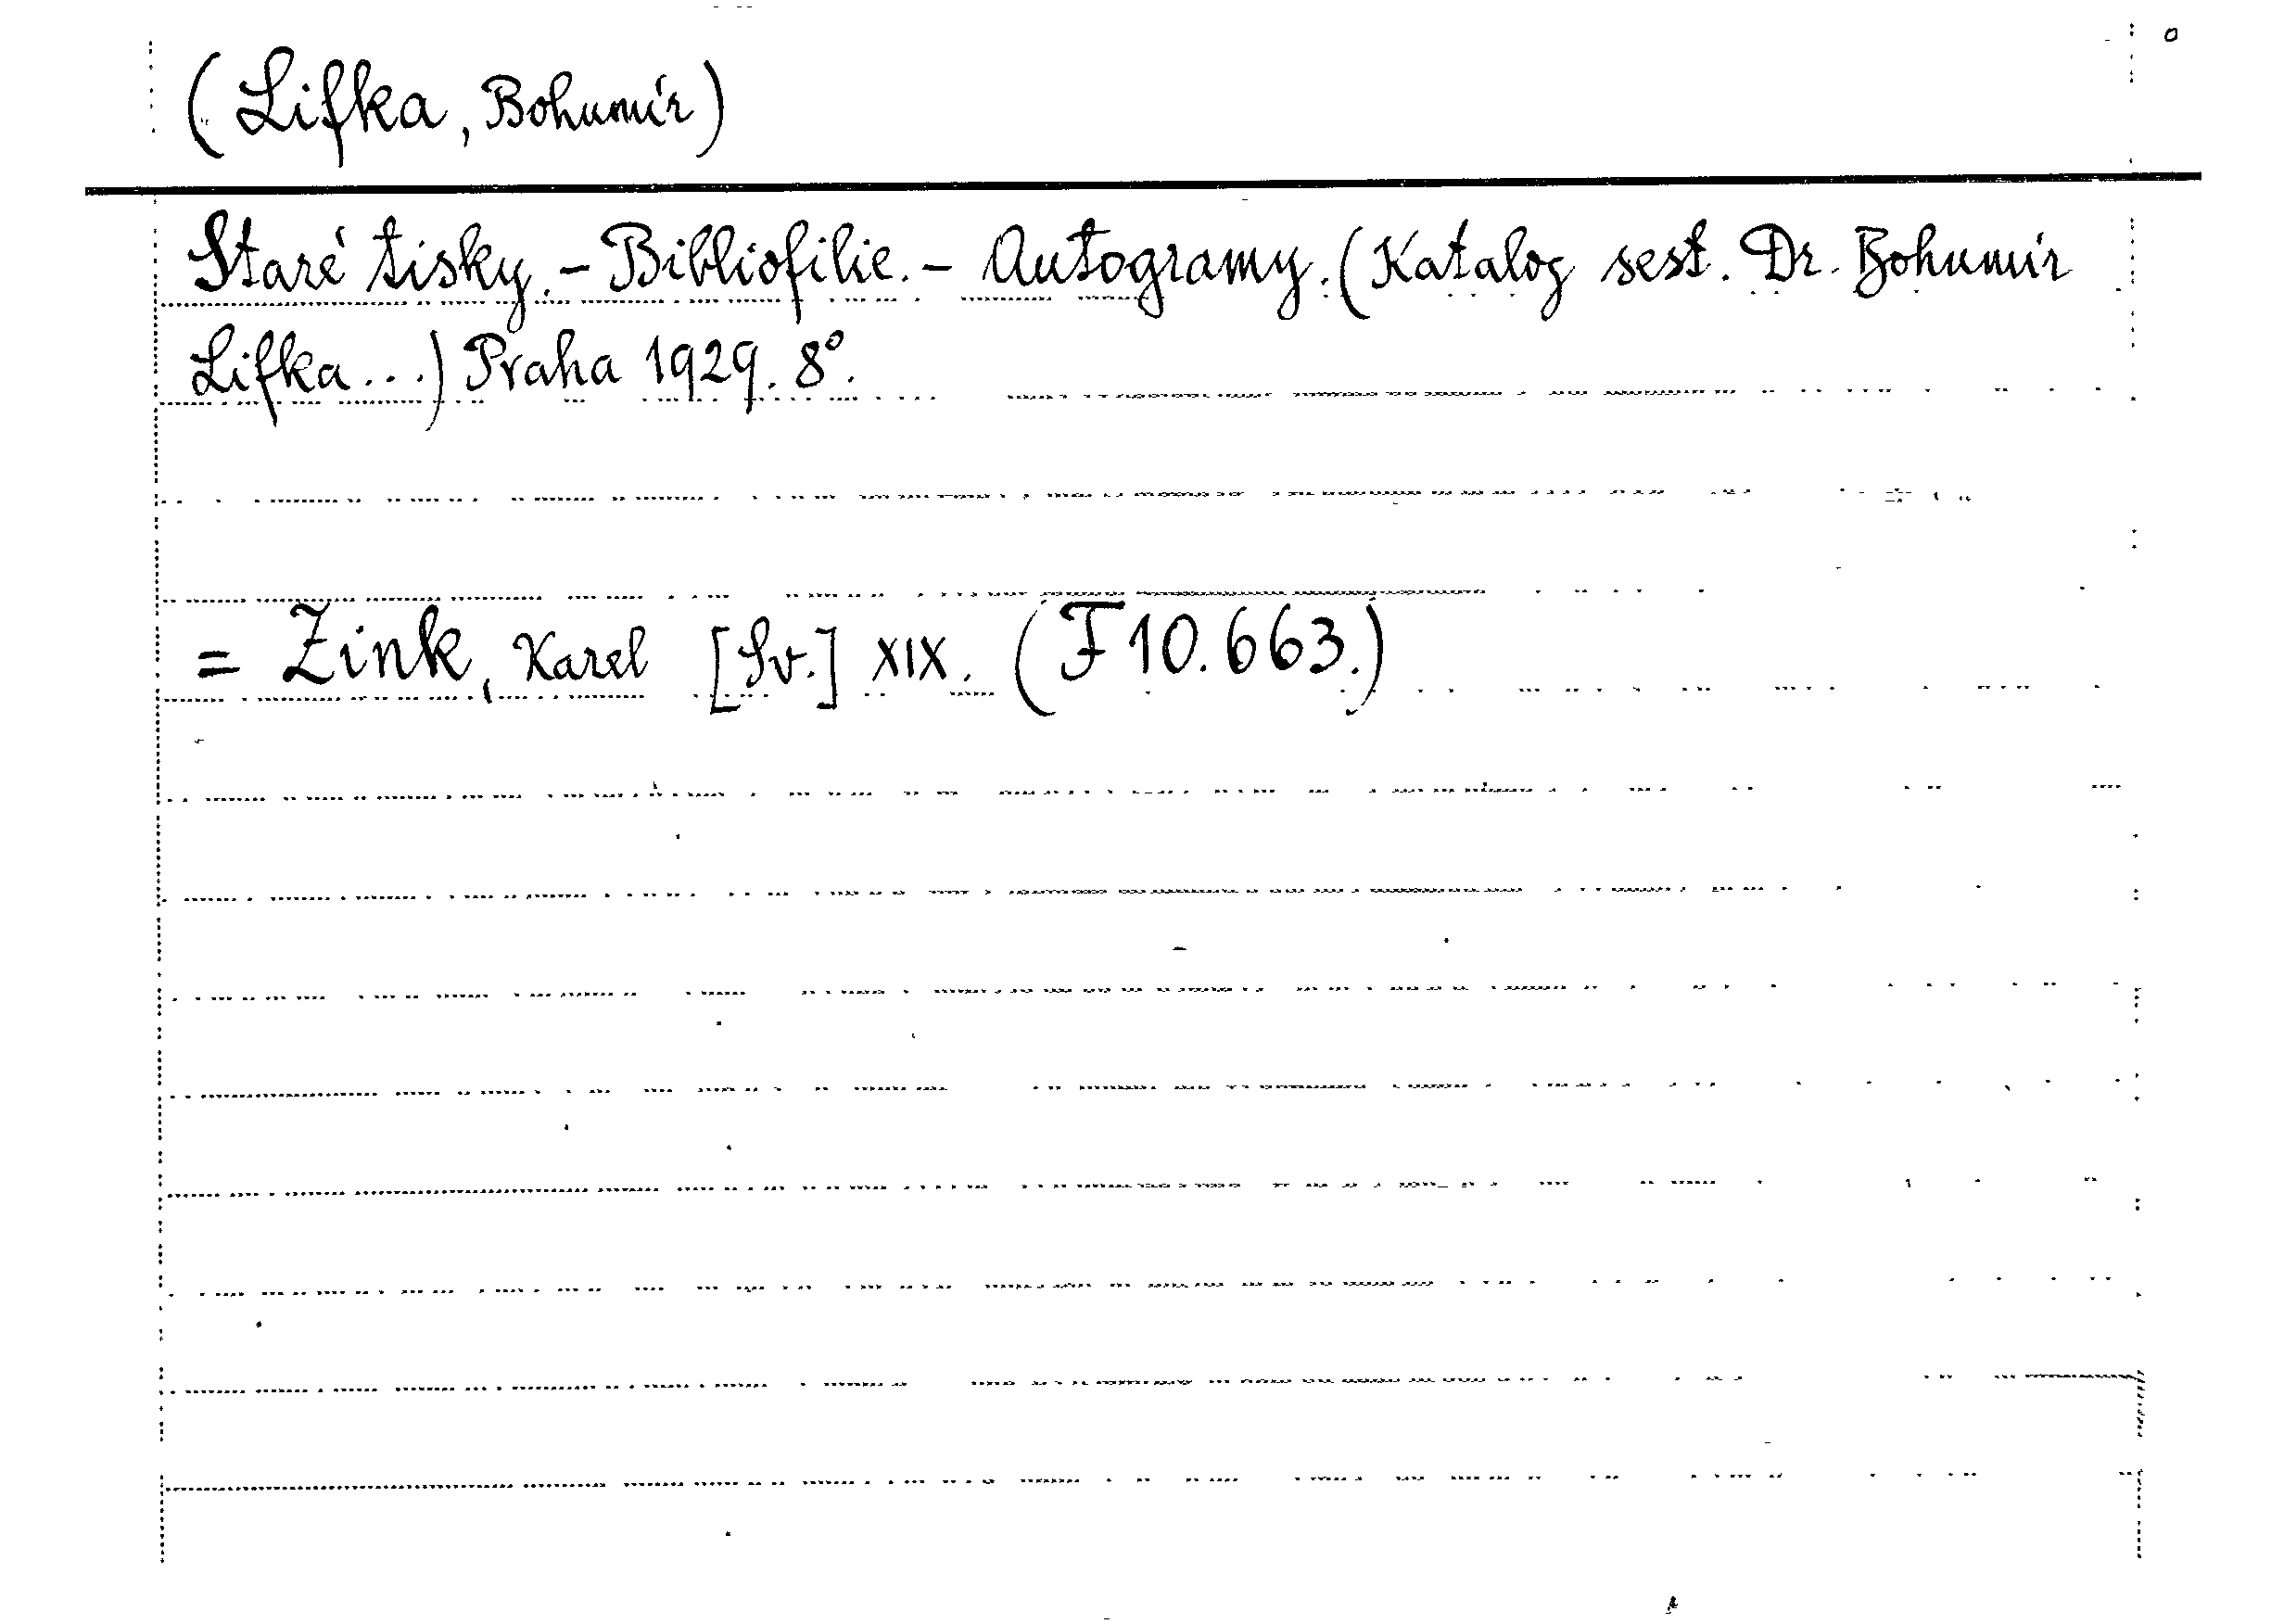 (Lifka, Bohumír)
Staré tisky. - Bibliofilie. - Autogramy. (Katalog sest. Dr. Bohumír
Lifka...) Praha 1929. 8°.
= Zink, Karel [Sv.] XIX. (F 10.663.)